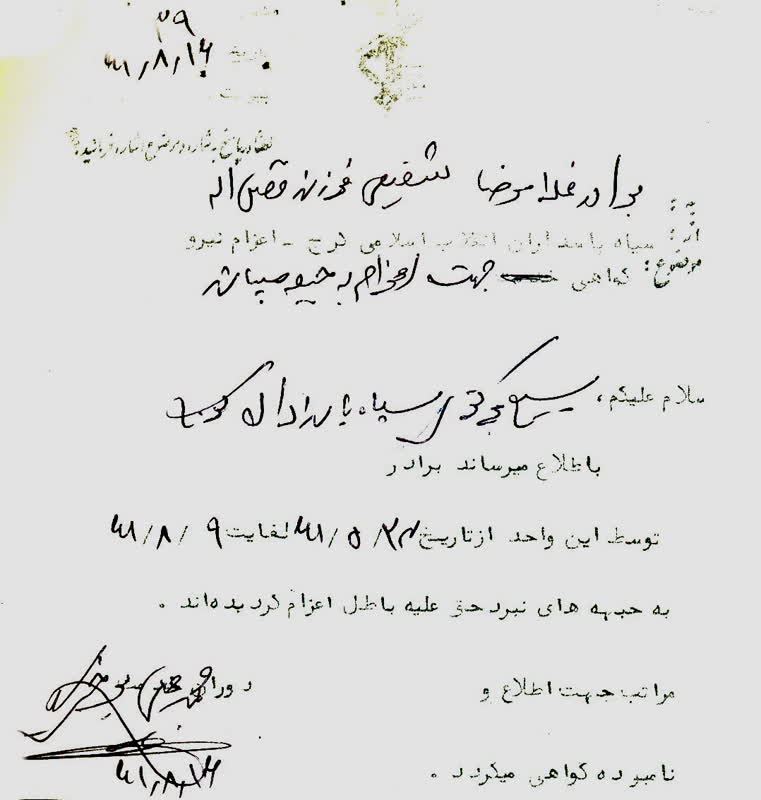 ۳۹
تاریخ ۶۱/۸/۱۶
پیوست
لطفاً در پاسخ به شماره و موضوع اشاره فرمائید
به: برادر غلامرضا شفیعی فرزند فیض اله
از: سپاه پاسداران انقلاب اسلامی کرج - اعزام نیرو
موضوع: گواهی جهت اعزام به جبهه میباشد
سلام علیکم، بسیج سپاه پاسداران
باطلاع میرساند برادر
توسط این واحد ازتاریخ ۶۱/۵/۲۳ لغایت ۶۱/۸/۹
به جبهه های نبرد حق علیه باطل اعزام گردیده‌اند .
مراتب جهت اطلاع و
نامبرده گواهی میگردد .
۶۱/۸/۱۶